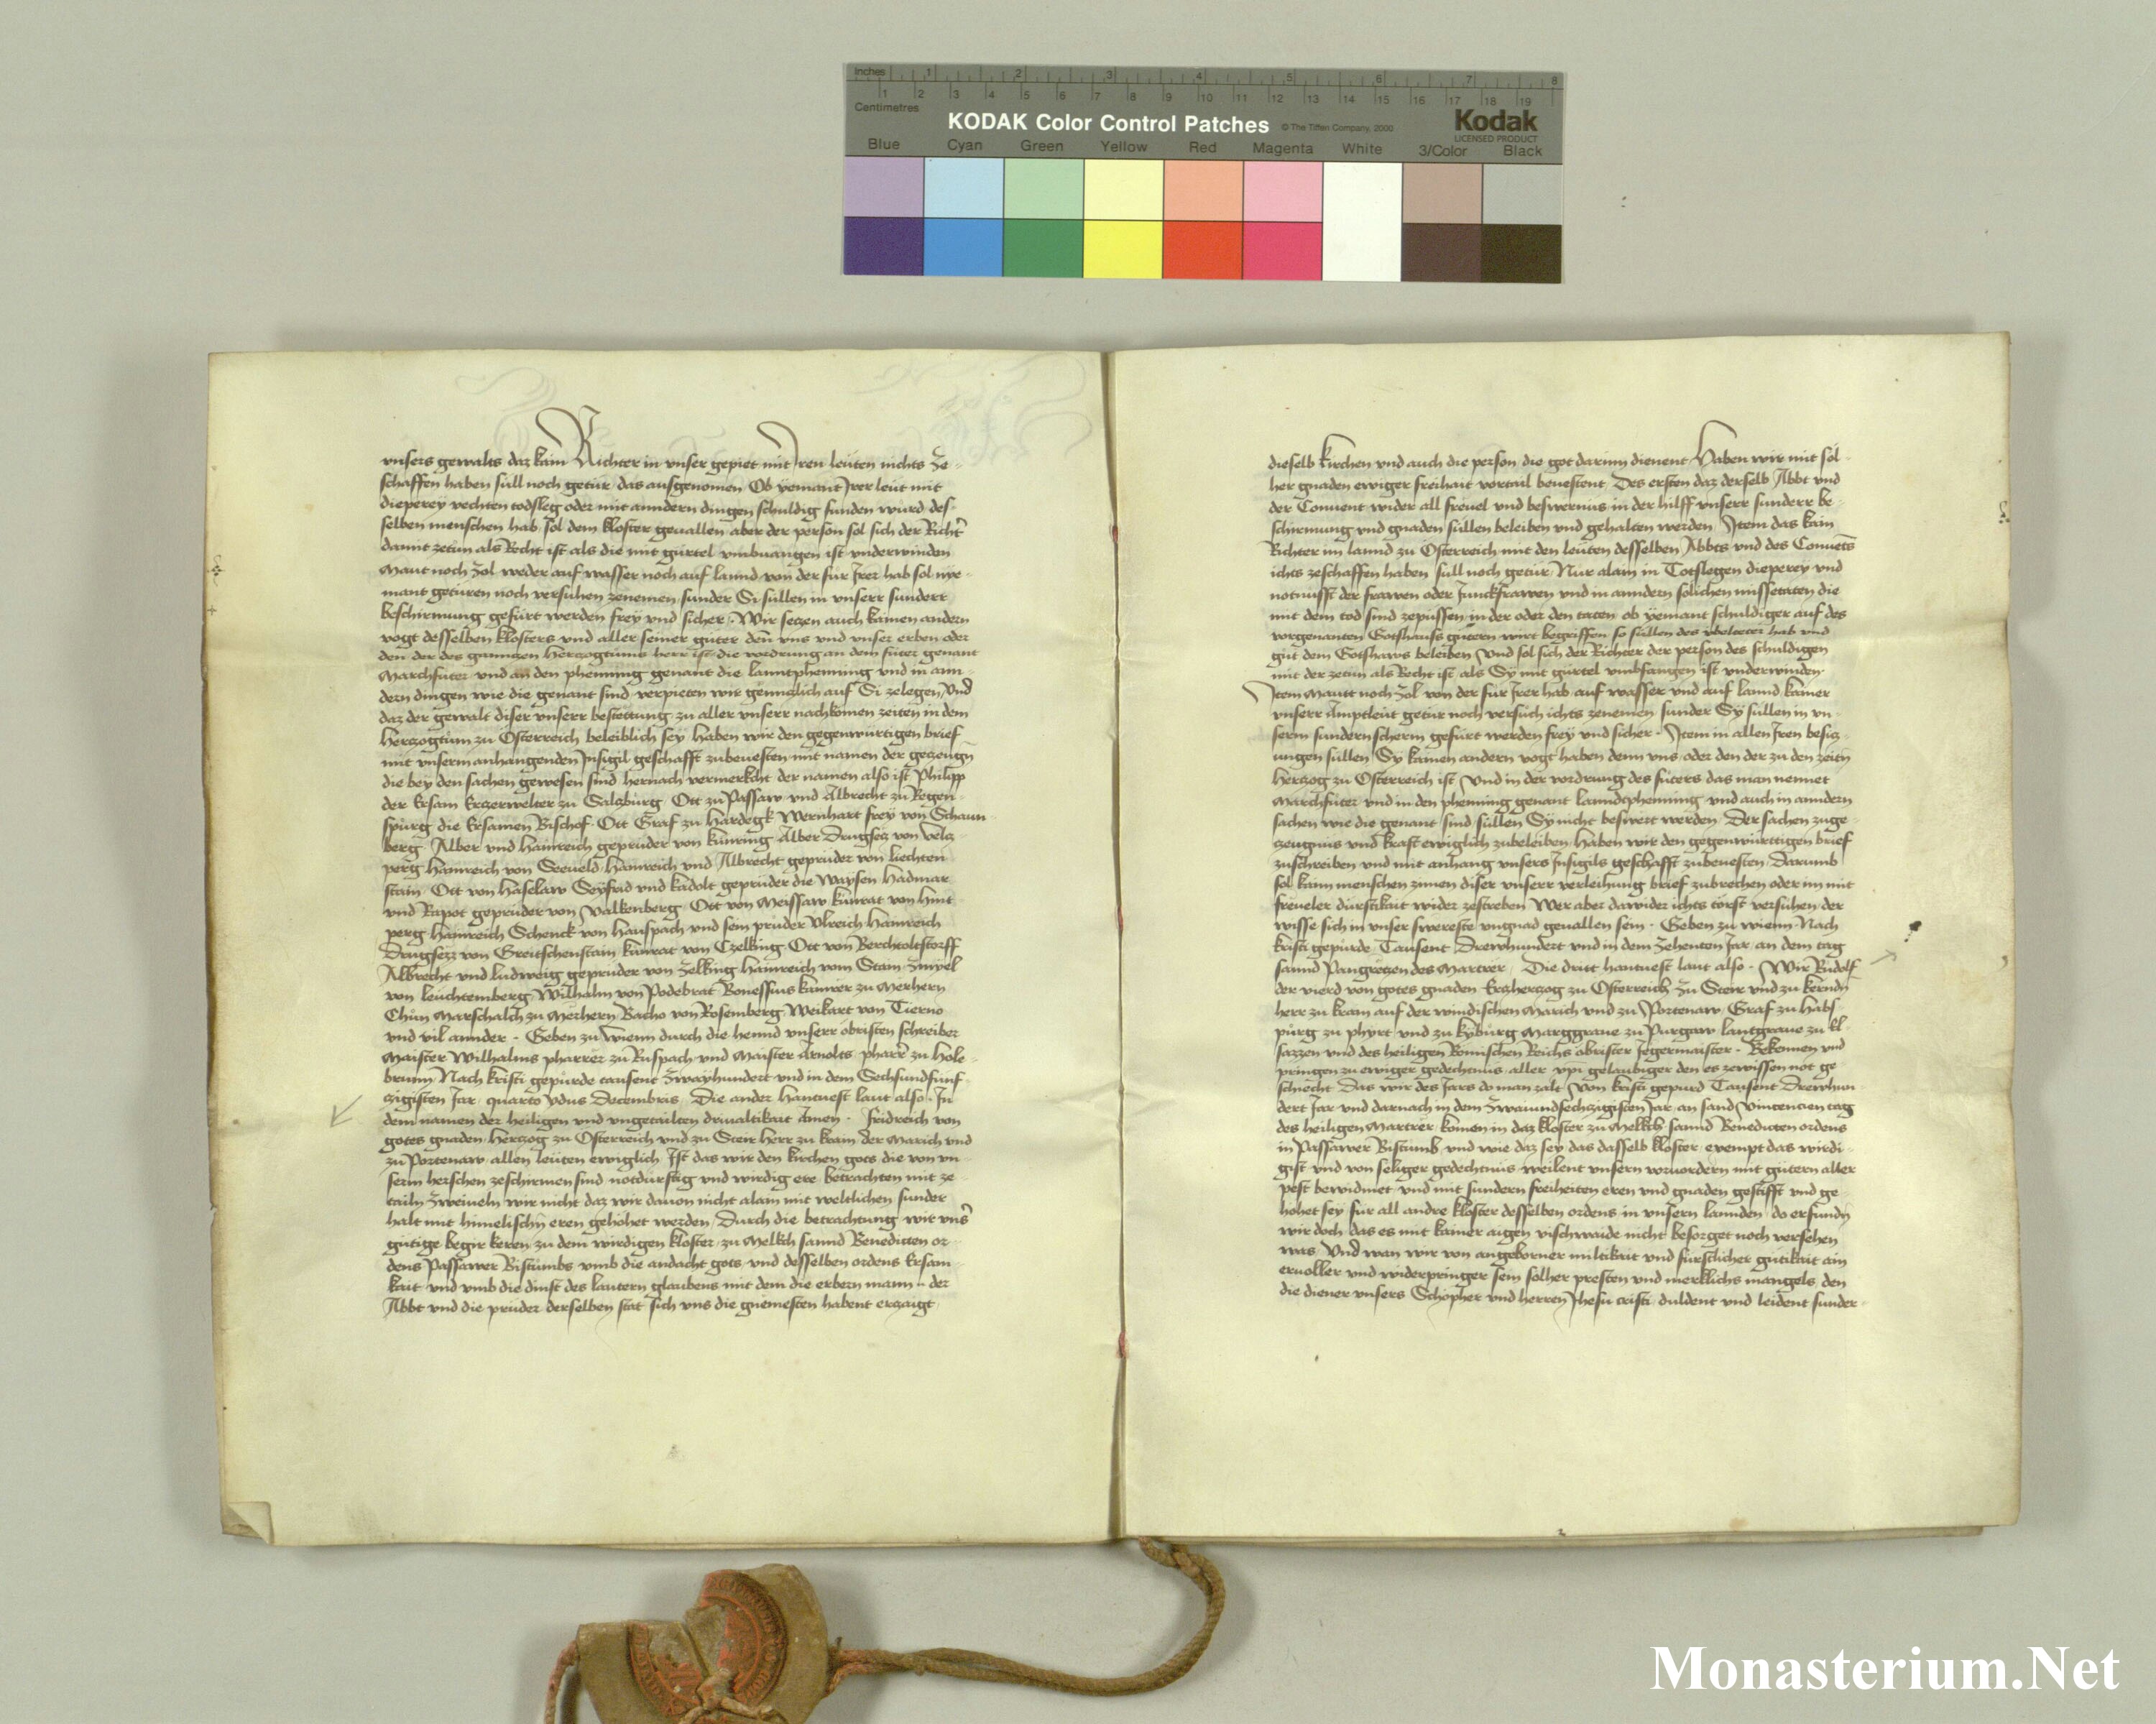 Inches 1 2 3 4 5 6 7 8
1 2 3 4 5 6 7 8 9 10 11 12 13 14 15 16 17 18 19
Centimetres
KODAK Color Control Patches © The Tiffen Company, 2000 Kodak
LICENSED PRODUCT
Blue Cyan Green Yellow Red Magenta White 3/Color Black
vnsers gewalts daz kain Richter in vnser gepiet mit Iren leuten nichts ze-
schaffen haben sull noch getür das ausgenomen Ob yemant Irer leut mit
dieperey rechten todsleg oder mit anndern dingen schuldig funden wurd des-
selben menschen hab sol dem kloster geuallen aber der person sol sich der Richter
damit zetun als Recht ist als die mit gürtel vmbuangen ist vnderwinden
Maut noch Zol weder auf wasser noch auf lannd von der fur Irer hab sol nye-
mant getüren noch versuhen zenemen sunder Si sullen in vnserr sunderr
beschirmung gefürt werden frey vnd sicher. Wir setzen auch kainen andern
vogt desselben klosters vnd aller seiner güter denn vns vnd vnser erben oder
den der des gannczen Herczogtums herr ist die vordrung an dem futer genant
Marchfuter vnd an den phenning genant die lanntphenning vnd in ann-
dern dingen wie die genant sind verpieten wir gennczlich auf Si zelegen Vnd
daz der gewalt diser vnserr bestettung zu aller vnserr nachkomen zeiten in dem
Herczogtum zu Osterreich beleiblich sey haben wir den gegenwurtigen brief
mit vnserm anhangenden Insigil geschafft zubeuesten mit namen der geczeugn
die bey den sachen gewesen sind hernach vermerkcht der namen also ist Philipp
der Ersam Erczerwelter zu Salczburg Ott zu Passaw vnd Albrecht zu Regen-
spurg die Ersamen Bischof Ott Graf zu Hardegk Wernhart frey von Schaun-
berg Alber vnd Hainreich geprüder von kunring Alber Drugsecz von velcz-
perg Hainreich von Seeueld Hainreich vnd Albrecht geprüder von liechten-
stain Ott von Haselaw Seyfrid vnd kadolt geprüder die Waysen Hadmar
vnd Rapot geprüder von Valkenberg Ott von Meissaw kunrat von hint-
perg Hainreich Schenck von Hauspach vnd sein prüder Vlreich Hainreich
Drugsecz von Greitschenstain kunrat von Czelking Ott von Berchtoltstorff
Albrecht vnd ludweig geprüder von Zelking Hainreich vom Stain Zmyel
von leuchtemberg Wilhalm von Podebrat Bonessius kamrer zu Merhern
Chun Marschalch zu Merhern Bacho von Rosemberg Weikart von Tierno
vnd vil annder. Geben zu wienn durch die hennd vnserr obristen schreiber
Maister Wilhalms pharrer zu Ruspach vnd Maister Arnolts pharrer zu Hole-
brunn Nach kristi gepurde tausent Zwayhundert vnd in dem Sechsundfunf-
czigisten Jar quarto ydus Decembris. Die ander hantuest laut also. In
dem namen der heiligen vnd vngetailten driualtikait Amen. Fridreich von
gotes gnaden Herczog zu Osterreich vnd zu Steir Herr zu krain der Marich vnd
zu Portenaw allen leuten ewiglich Ist das wir den kirchen gots die von vn-
serm herschen zeschirmen sind notdurftig vnd wirdig ere betrachten mit ze-
tailn Zweiueln wir nicht daz wir dauon nicht alain mit weltlichen sunder
halt mit himelischn eren gehohet werden Durch die betrachtung wir vnser
gutige begir keren zu dem wirdigen kloster zu Melkch sannd Benedicten or-
dens Passawer Bistumbs vmb die andacht gots vnd desselben ordens Ersam-
kait vnd vmb die dinst des lautern glaubens mit dem die erbern mann der
Abbt vnd die prüder derselben stat sich vns die gnemesten habent erczaigt
dieselb kirchen vnd auch die person die got darinn dienent Haben wir mit sol-
her gnaden ewiger freihait vortail beuestent Des ersten daz derselb Abbt vnd
der Conuent wider all freuel vnd beswernüs in der hilff vnserr sunderr be-
schirmung vnd gnaden sullen beleiben vnd gehalten werden Item das kain
Richter im lannd zu Osterreich mit den leuten desselben Abbts vnd des Conuents
ichts zeschaffen haben sull noch getür Nur alain in Totslegen dieperey vnd
notnufft der frawen oder Junckfrawen vnd in anndern solichen missetaten die
mit dem tod sind zepüssen in der oder den taten ob yemant schuldiger auf des
vorgenanten Gotshauss gutern wirt begriffen so sullen des vbelteter hab vnd
gut dem Gotshaws beleiben Vnd sol sich der Richter der person des schuldigen
mit der zetun als Recht ist als Sy mit gürtel vmbfangen ist vnderwinden
Item Mautt noch Zol von der fur Irer hab auf wasser vnd auf lannd kainer
vnserr Amptleut getür noch versuch ichts zenemen sunder Sy sullen in vn-
serm sundern scherm gefürt werden frey vnd sicher. Item in allen Iren besicz-
ungen sullen Sy kainen andern vogt haben denn vns oder den der zu den zeitn
Herczog zu Osterreich ist Vnd in der vordrung des futers das man nennet
Marchfuter vnd in den phenning genant lanndtphenning vnd auch in anndern
sachen wie die genant sind sullen Sy nicht beswert werden Der sachen zuge-
czeugnus vnd kraft ewiglich zubeleiben Haben wir den gegenwurttigen brief
zuschreiben vnd mit anhang vnsers Insigils geschafft zubeuesten Darumb
sol kain menschen zimen diser vnserr verleihung brief zubrechen oder im mit
freueler durstikait wider zestreben Wer aber dawider ichts torst versuhen der
wisse sich in vnser swereste vngnad geuallen sein. Geben zu wienn Nach
kristi gepurde Tausent Drewhundert vnd in dem Zehenten Jar an dem tag
sannd Pangreczen des Martrer Die dritt hantuest laut also. Wir Rudolf
der vierd von gotes gnaden Erczherczog zu Osterreich zu Steir vnd zu kerndn
herr zu krain auf der windischen Marich vnd zu Portenaw Graf zu Habs-
purg zu phyrt vnd zu kyburg Marggraue zu Purgaw lantgraue zu El-
sazzen vnd des heiligen Romischen Reichs obrister Jegermaister. Bekennen vnd
pringen zu ewiger gedechtnus aller xpi gelaubiger den es zewissen not ge-
schiecht Das wir des Jars do man zalt Von kristi gepurd Tausent Drewhun-
dert Jar vnd darnach in dem Zwaiundsechczigisten Jar an sand Vincencien tag
des heiligen Martrer komen in daz kloster zu Melkch sannd Benedicten ordens
in Passawer Bistumb vnd wie daz sey das dasselb kloster exempt das wirdi-
gist vnd von seliger gedechtnus weilent vnsern voruordern mit gütern aller
pest bewidmet vnd mit sundern freiheiten eren vnd gnaden gestifft vnd ge-
hohet sey fur all andre kloster desselben ordens in vnsern lannden do erfundn
wir doch das es mit kainer aigen vischwaide nicht besorget noch versehen
was Vnd wan wir von angeborner miltikait vnd furstlicher gutikait ain
eruoller vnd widerpringer sein solher presten vnd merklichs mangels den
die diener vnsers Schopher vnd herren Jhesu cristi duldent vnd leident sunder
Monasterium.Net